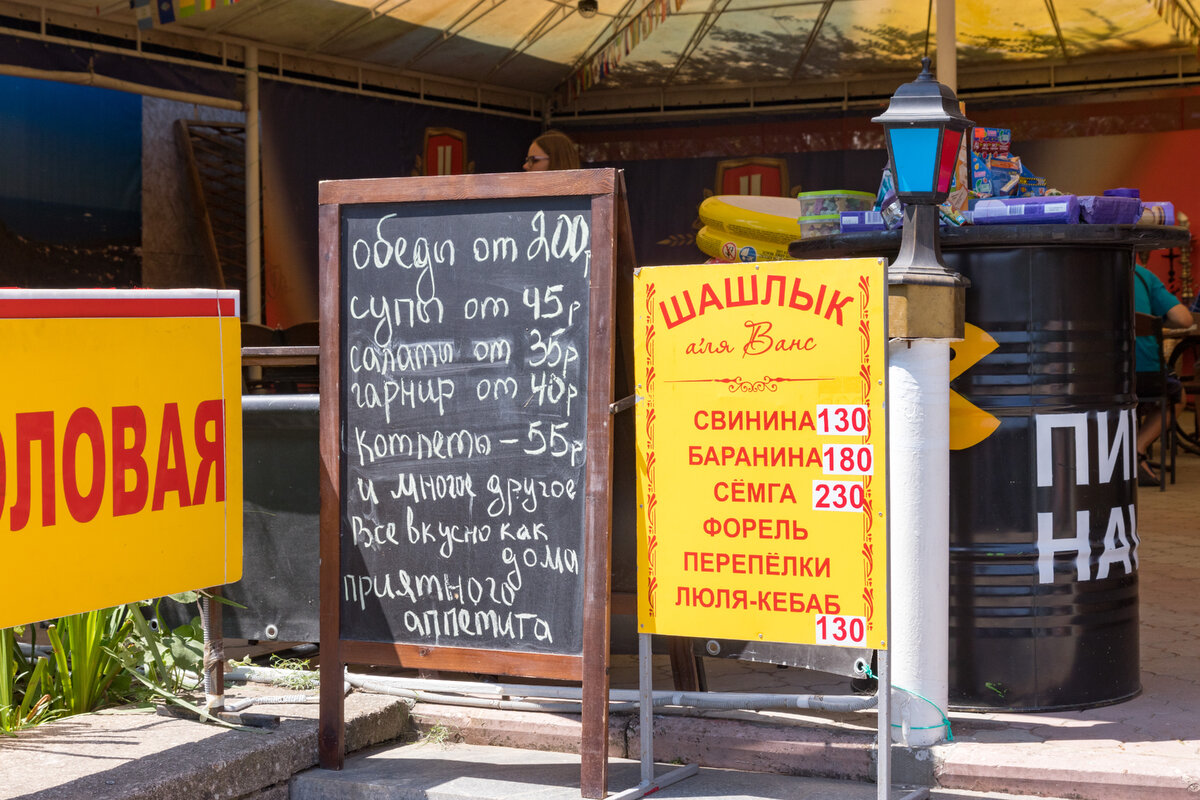 ОЛОВАЯ
обеды от 200р
супы от 45р
салаты от 35р
гарнир от 40р
котлеты - 55р
и многое другое
Все вкусно как
дома
приятного
аппетита
ШАШЛЫК
а'ля Ванс
СВИНИНА 130
БАРАНИНА 180
СЁМГА 230
ФОРЕЛЬ
ПЕРЕПЁЛКИ
ЛЮЛЯ-КЕБАБ
130
ПИ
НА